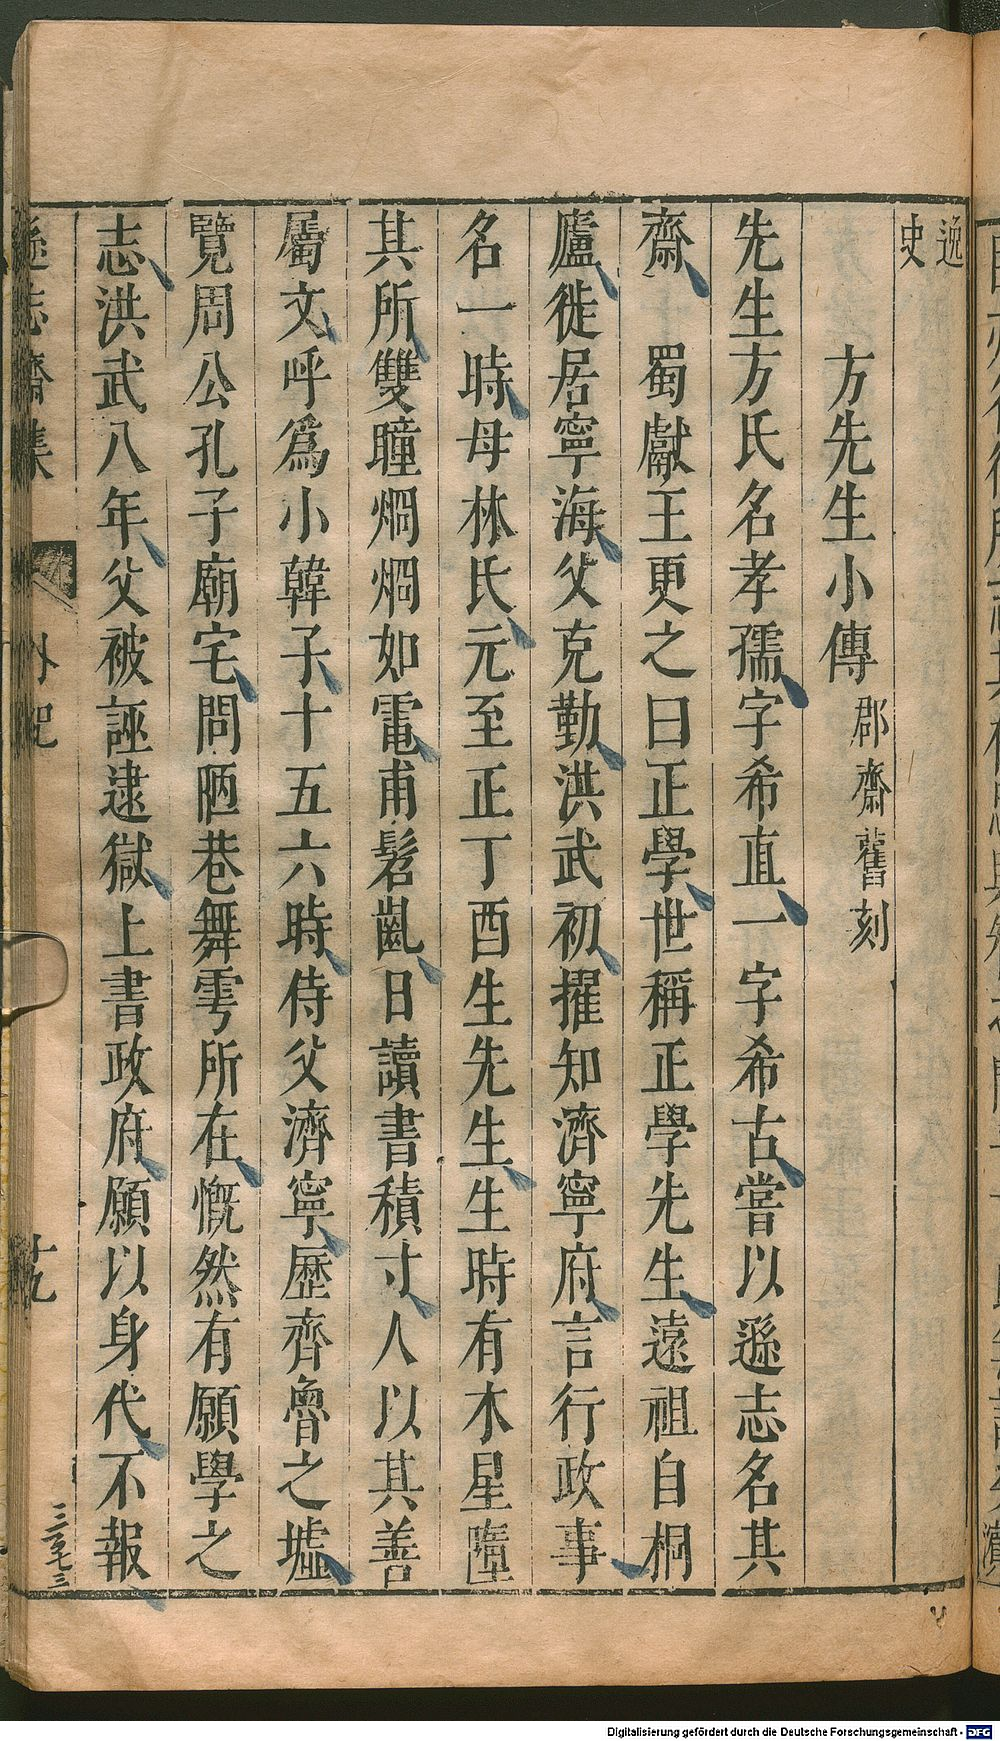 逸史
方先生小傳 郡齋舊刻
先生方氏名孝孺字希直一字希古嘗以遜志名其
齋 蜀獻王更之曰正學世稱正學先生遠祖自桐
廬徙居寧海父克勤洪武初擢知濟寧府言行政事
名一時母林氏元至正丁酉生先生生時有木星墮
其所雙瞳烱烱如電甫髫齔日讀書積寸人以其善
屬文呼爲小韓子十五六時侍父濟寧歷齊魯之墟
覽周公孔子廟宅問陋巷舞雩所在慨然有願學之
志洪武八年父被誣逮獄上書政府願以身代不報
遜志齋集 外紀 十九
Digitalisierung gefördert durch die Deutsche Forschungsgemeinschaft - DFG